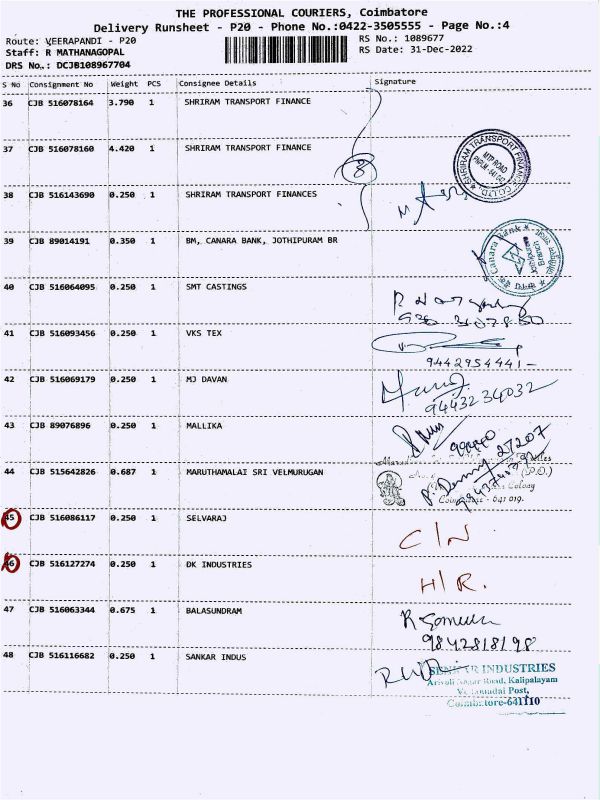 THE PROFESSIONAL COURIERS, Coimbatore
Delivery Runsheet - P20 - Phone No.:0422-3505555 - Page No.:4
Route: VEERAPANDI - P20 RS No.: 1089677
Staff: R MATHANAGOPAL RS Date: 31-Dec-2022
DRS No.: DCJB108967704
S No Consignment No Weight PCS Consignee Details Signature
36 CJB 516078164 3.790 1 SHRIRAM TRANSPORT FINANCE
37 CJB 516078160 4.420 1 SHRIRAM TRANSPORT FINANCE
38 CJB 516143690 0.250 1 SHRIRAM TRANSPORT FINANCES
39 CJB 89014191 0.350 1 BM, CANARA BANK, JOTHIPURAM BR
40 CJB 516064095 0.250 1 SMT CASTINGS
41 CJB 516093456 0.250 1 VKS TEX
9442954441
42 CJB 516069179 0.250 1 MJ DAVAN
94432 34032
43 CJB 89076896 0.250 1 MALLIKA
44 CJB 515642826 0.687 1 MARUTHAMALAI SRI VELMURUGAN
(P.O.)
Colony
641 019.
45 CJB 516086117 0.250 1 SELVARAJ C/N
46 CJB 516127274 0.250 1 DK INDUSTRIES H/R.
47 CJB 516063344 0.675 1 BALASUNDRAM
9842818198
48 CJB 516116682 0.250 1 SANKAR INDUS
INDUSTRIES
Road, Kalipalayam
Post,
Coimbatore-641110